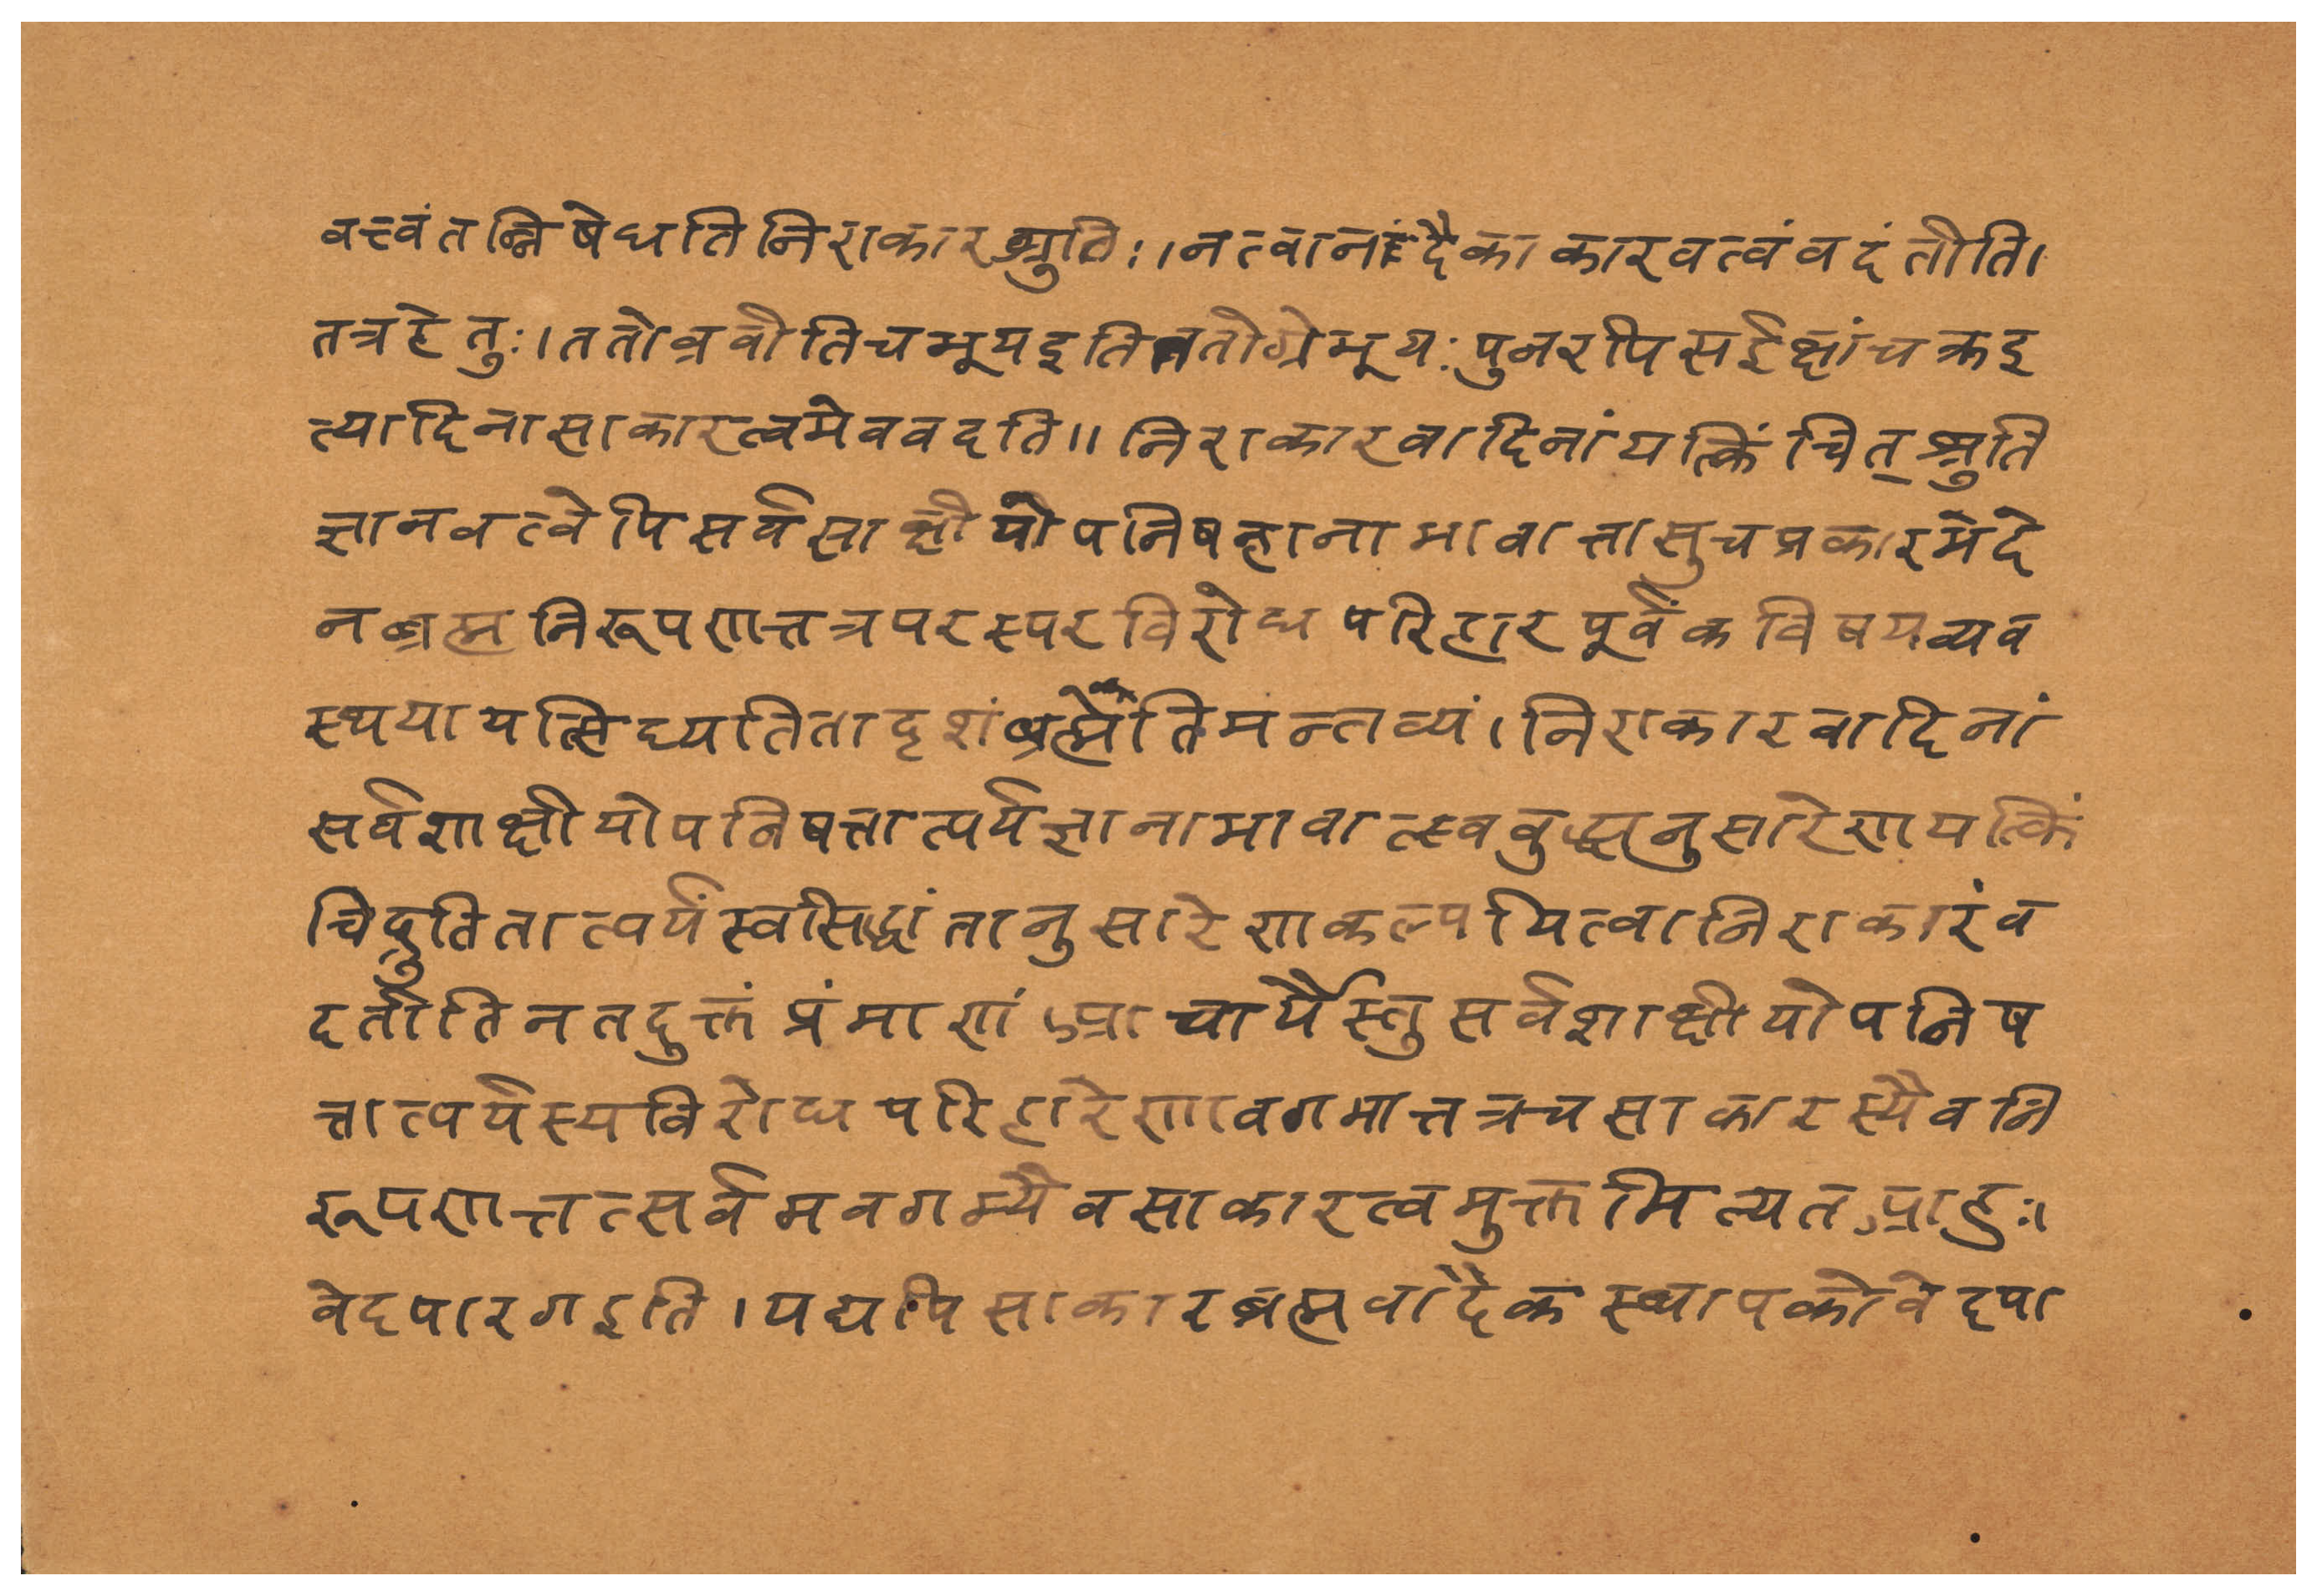 वत्त्वंतन्निषेधतिनिराकारश्रुतिः।नत्वानंदैकाकारवत्वंवदंतीति।
तत्रहेतुः।ततोब्रवीतिचभूयइतिततोग्रेभूयःपुनरपिसईक्षांचक्रइ
त्यादिनासाकारत्वमेववदति॥निराकारवादिनांयत्किंचित्श्रुति
ज्ञानवत्वेपिसर्वसाक्षीयोपनिषज्ञानाभावात्तासुचप्रकारभेदे
नब्रह्मनिरूपणात्तत्रपरस्परविरोधपरिहारपूर्वकविषयव्यव
स्थयायत्सिध्यतितादृशंब्रह्मेतिमन्तव्यं।निराकारवादिनां
सर्वशाक्षीयोपनिषत्तात्पर्यज्ञानाभावात्स्वबुद्ध्यनुसारेणयत्किं
चिद्रुतितात्पर्यंस्वसिद्धांतानुसारेणकल्पयित्वानिराकारंव
दतीतिनतदुक्तंप्रंमाणंआचार्यैस्तुसर्वशाक्षीयोपनिष
त्तात्पर्यस्यविरोधपरिहारेणावगमात्तत्रचसाकारस्यैवनि
रूपणात्तत्सर्वमवगम्यैवसाकारत्वमुक्तमित्यतआहुः।
वेदपारगइति।यद्यपिसाकारब्रह्मवादैकस्थापकोवेदपा